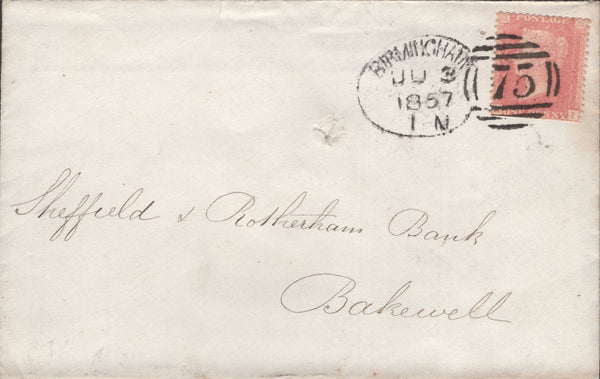 BIRMINGHAM
JU 3
1857
1 N
75
POSTAGE
Sheffield & Rotherham Bank
Bakewell